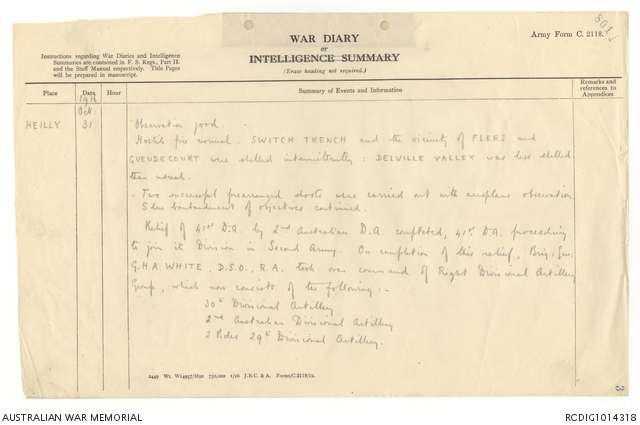 WAR DIARY
or
INTELLIGENCE SUMMARY
(Erase heading not required.)
Army Form C. 2118.
Instructions regarding War Diaries and Intelligence
Summaries are contained in F. S. Regs., Part II.
and the Staff Manual respectively. Title Pages
will be prepared in manuscript.
Place Date Hour Summary of Events and Information Remarks and references to Appendices
1916
Oct.
HEILLY 31 Observation good.
Hostile fire normal. SWITCH TRENCH and the vicinity of FLERS and
GUEUDECOURT were shelled intermittently: DELVILLE VALLEY was less shelled
than usual.
Two successful prearranged shoots were carried out with aeroplane observation.
Slow bombardment of objectives continued.
Relief of 41st D.A. by 2nd Australian D.A. completed, 41st D.A. proceeding
to join its Division in Second Army. On completion of this relief, Brig. Gen.
G.H.A. WHITE, D.S.O., R.A. took over command of Right Divisional Artillery
Group, which now consists of the following:-
30th Divisional Artillery
2nd Australian Divisional Artillery
2 Bdes 29th Divisional Artillery.
2449 Wt. W14957/M90 750,000 1/16 J.B.C. & A. Forms/C.2118/12.
3
AUSTRALIAN WAR MEMORIAL
RCDIG1014318